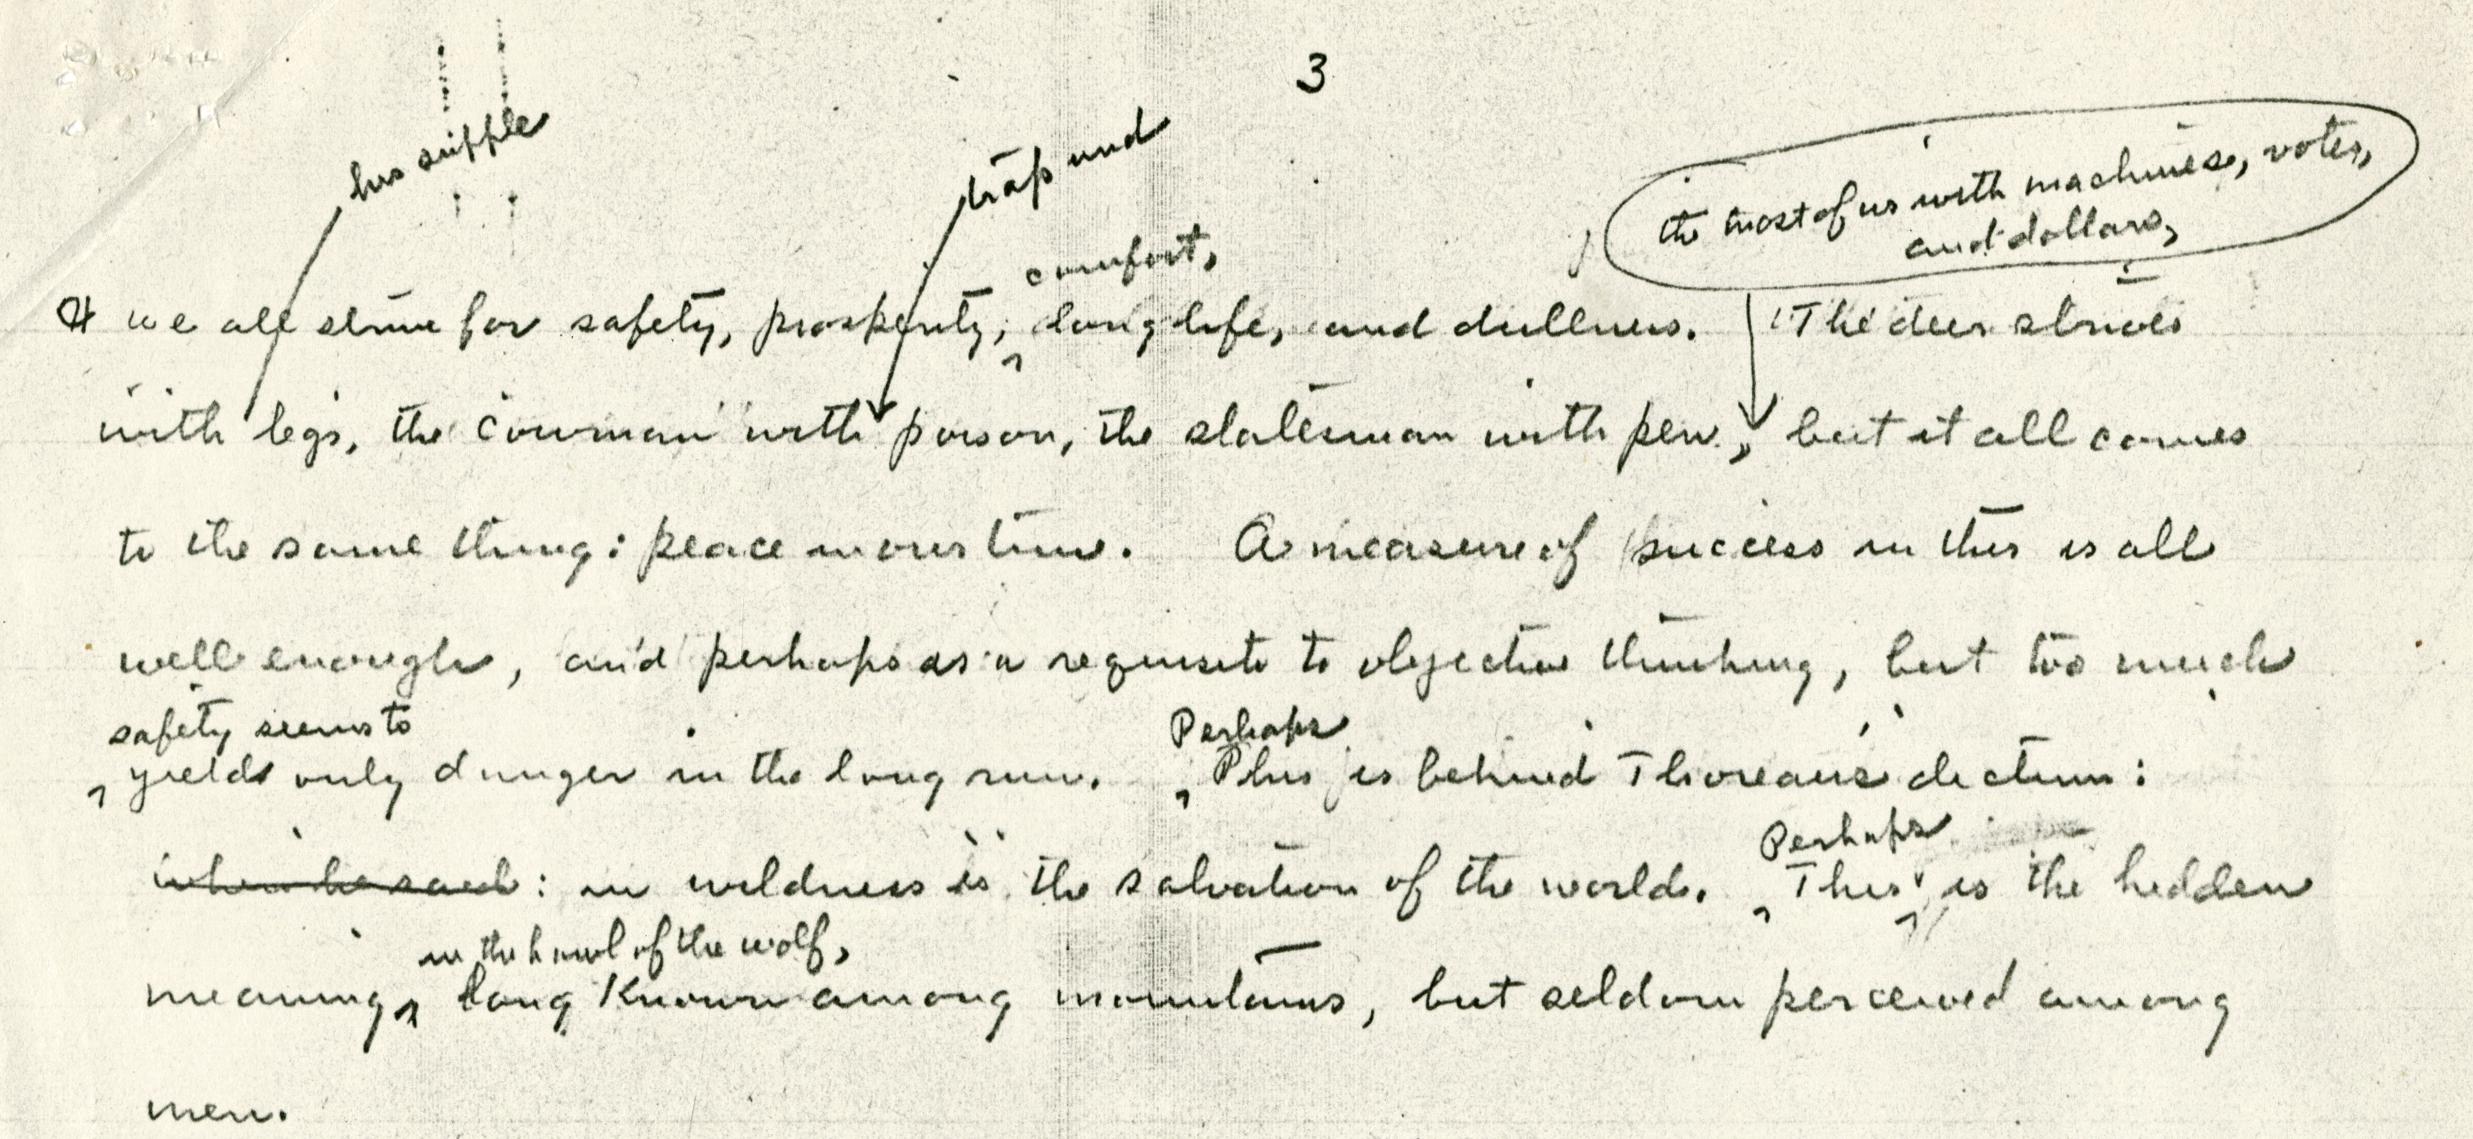 3
his supple
trap and
the most of us with machines, votes,
and dollars,
comfort,
we all strive for safety, prosperity, long life, and dullness. The deer strives
with legs, the cowman with poison, the statesman with pen, but it all comes
to the same thing: peace in our time. A measure of success in this is all
well enough, and perhaps is a requisite to objective thinking, but too much
safety seems to
yield only danger in the long run. Perhaps
This is behind Thoreau's dictum:
Perhaps
when he said: in wildness is the salvation of the world. This is the hidden
in the howl of the wolf,
meaning, long known among mountains, but seldom perceived among
men.